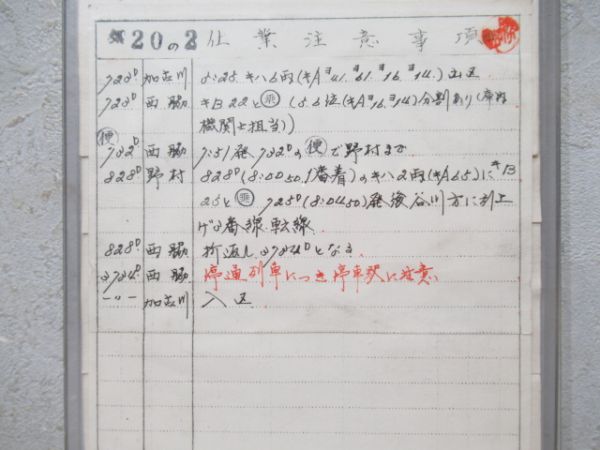 第20の2仕業注意事項
722D 加古川 5:25 キハ6両(キA 41. 61. 16. 14.)出区
723D 西脇 キB22と(5.6位(キA16.14)分割あり(
機関士担当))
便
732D 西脇 7:51発732Dの便で野村まで
828D 野村 828D(8:00 50. 1番着)のキハ2両(キA65)にキB
25と 725D(8:04 50)発後谷川方に引上
げ2番線転線
828D 西脇 折返し 2724Dとなる
2724D 西脇 停通列車につき停車駅に注意
〃 加古川 入区